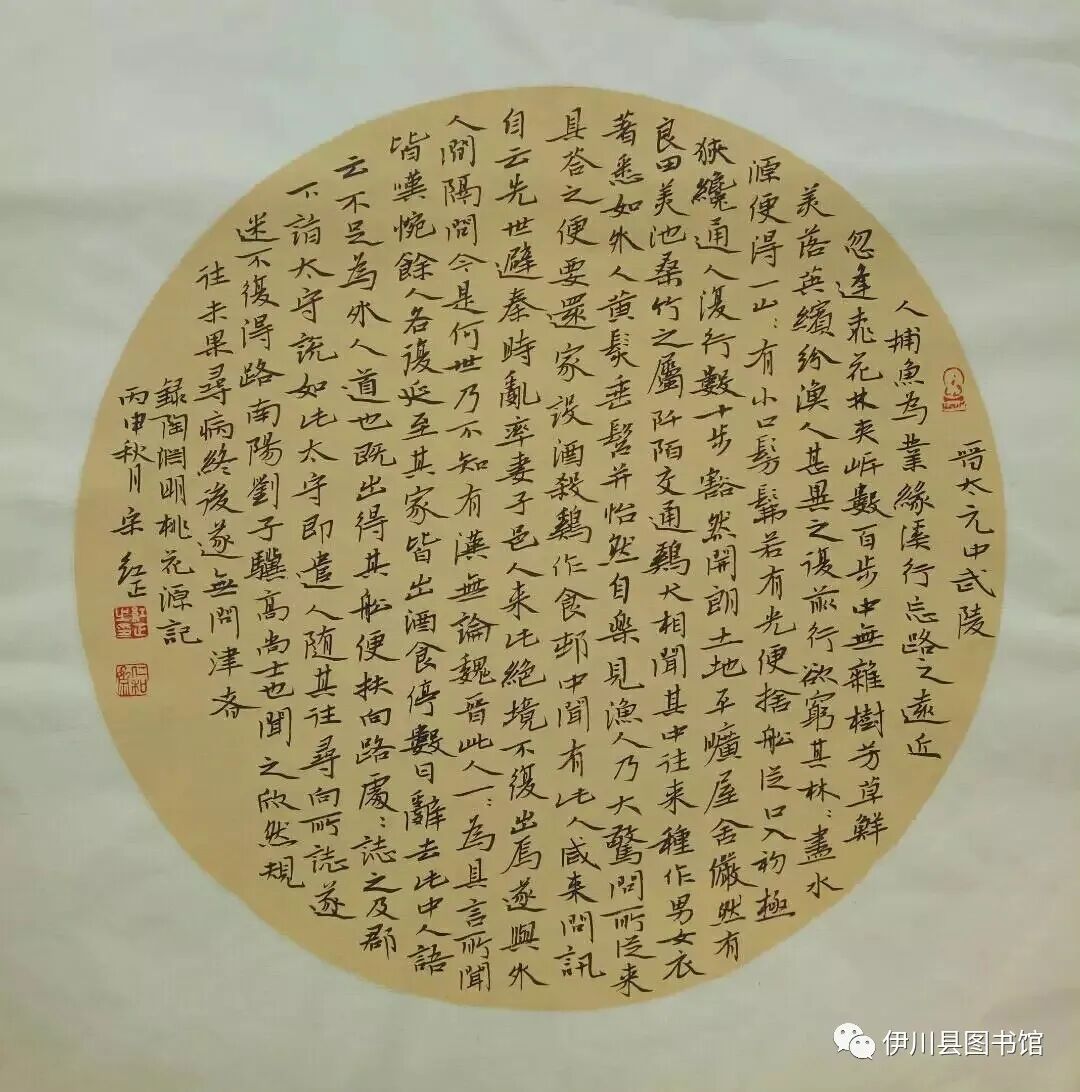 晉太元中武陵
人捕魚為業緣溪行忘路之遠近
忽逢桃花林夾岍數百步中無雜樹芳草鮮
美落英繽紛漁人甚異之復前行欲窮其林：盡水
源便得一山：有小口髣髴若有光便捨船從口入初極
狹纔通人復行數十步豁然開朗土地平曠屋舍儼然有
良田美池桑竹之屬阡陌交通鷄犬相聞其中往来種作男女衣
著悉如外人黃髮垂髫并怡然自樂見漁人乃大驚問所從来
具荅之便要還家設酒殺鷄作食邨中聞有此人咸来問訊
自云先世避秦時亂率妻子邑人来此絕境不復出焉遂與外
人間隔問今是何世乃不知有漢無論魏晉此人一：為具言所聞
皆嘆惋餘人各復延至其家皆出酒食停數日辭去此中人語
云不足為外人道也既出得其船便扶向路處：誌之及郡
下詣太守説如此太守即遣人随其往尋向所誌遂
迷不復得路南陽劉子驥高尚士也聞之欣然規
往未果尋病終後遂無問津者
録陶淵明桃花源記
丙申秋月宋紅正
伊川县图书馆